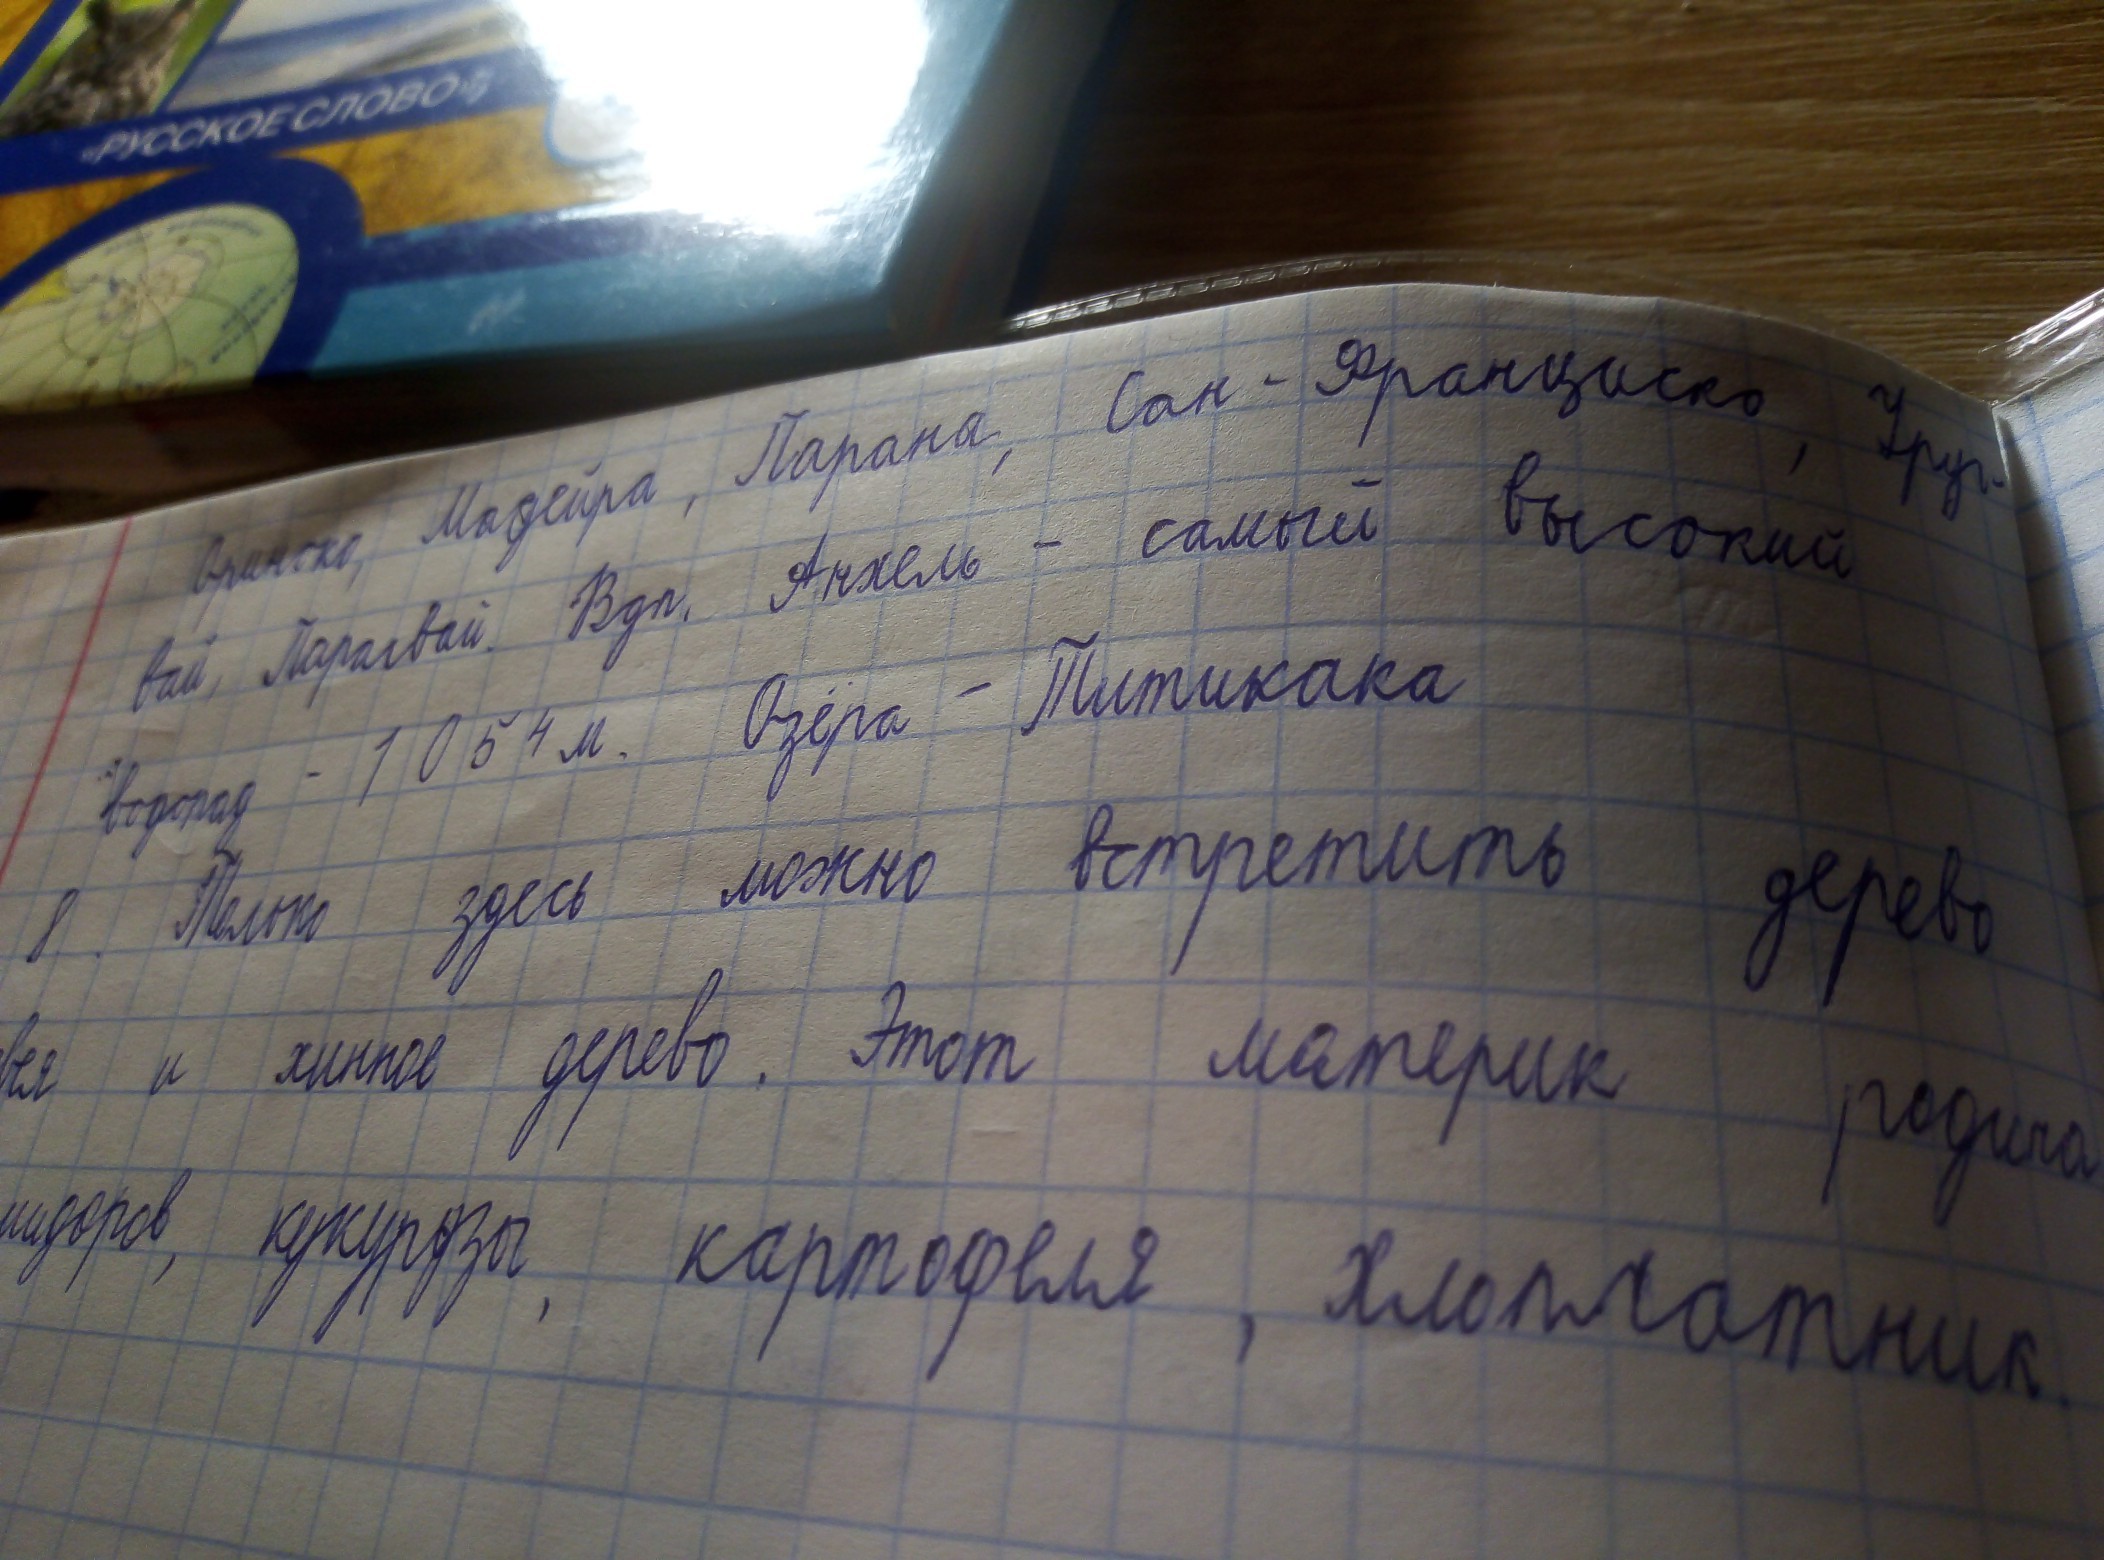 «РУССКОЕ СЛОВО»
Ориноко, Мадейра, Парана, Сан-Франциско, Уруг-
вай, Парагвай. Вдп. Анхель - самый высокий
водопад - 1054м. Озёра - Титикака
8. Только здесь можно встретить дерево
вея и хинное дерево. Этот материк родина
мидоров, кукурузы, картофеля, хлопчатник.